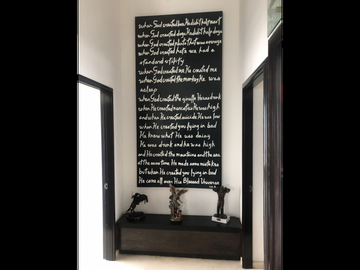 when God created love He didn't help most
when God created dogs He didn't help dogs
when God created plants that was average
when God created hate we had a
standard utility
when God created me He created me
when God created the monkey He was
asleep
when God created the giraffe He was drunk
when He created narcotics He was high
and when He created suicide He was low
when He created you lying in bed
He knew what He was doing
He was drunk and He was high
and He created the mountains and the sea
at the same time He made some mistakes
but when He created you lying in bed
He came all over His Blessed Universe